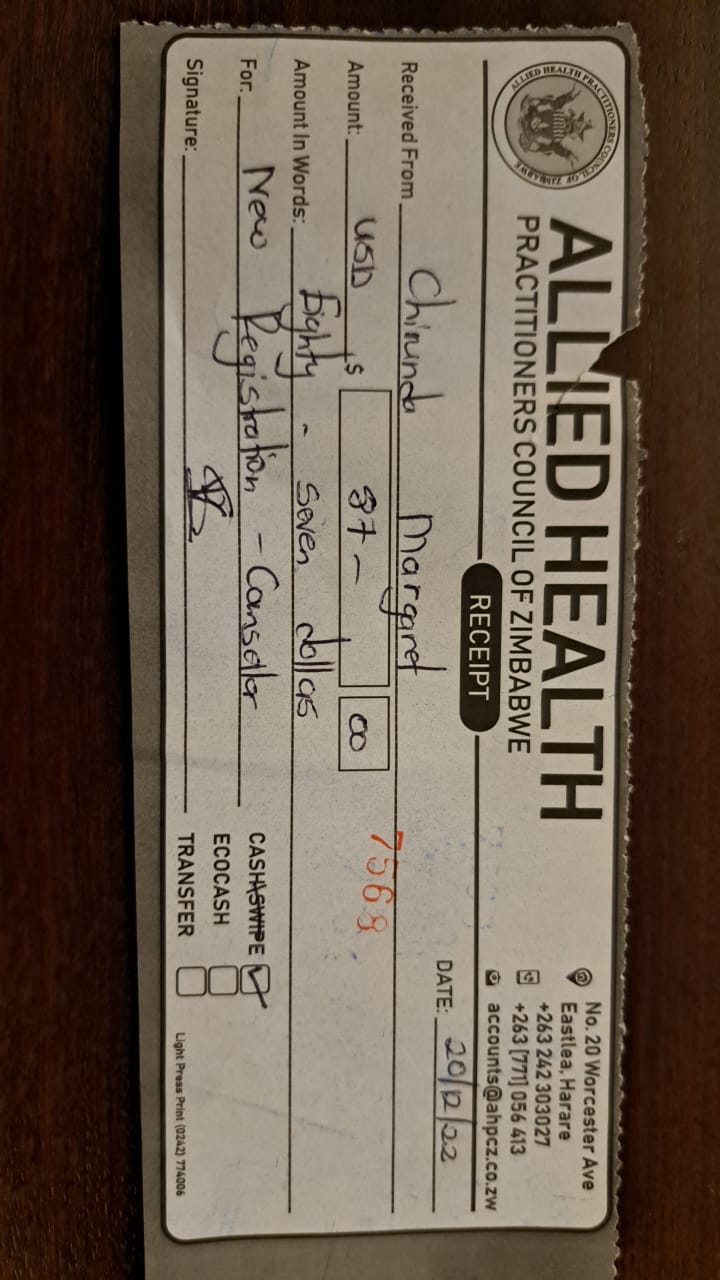 ALLIED HEALTH PRACTITIONERS COUNCIL OF ZIMBABWE
ALLIED HEALTH
PRACTITIONERS COUNCIL OF ZIMBABWE
No. 20 Worcester Ave
Eastlea, Harare
+263 242 303027
+263 [771] 056 413
accounts@ahpcz.co.zw
RECEIPT
DATE: 20/12/22
Received From Chirunda Margaret
7568
Amount: USD $ 87 - 00
Amount In Words: Eighty - seven dollas
For: New Registration - Cansellor
CASH\SWIPE
ECOCASH
Signature:
TRANSFER
Light Press Print (0242) 774006